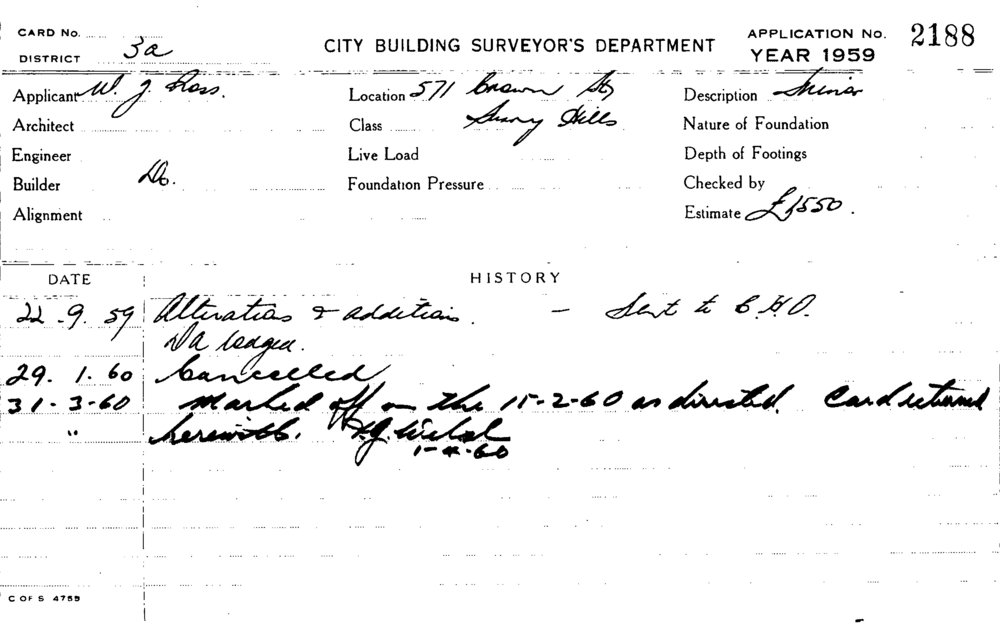 CARD No.
DISTRICT 3a
CITY BUILDING SURVEYOR'S DEPARTMENT
APPLICATION No. 2188
YEAR 1959
Applicant W. J. Ross.
Location 571 Crown St
Description Minor
Architect
Class Surry Hills
Nature of Foundation
Engineer
Live Load
Depth of Footings
Builder Do.
Foundation Pressure
Checked by
Alignment
Estimate £1550.
DATE HISTORY
22.9.59 Alterations & additions. - Sent to C.H.O.
DA lodged.
29.1.60 Cancelled
31-3-60 Marked off on the 15-2-60 as directed. Card returned
" herewith.
1-4-60
C OF S 4759